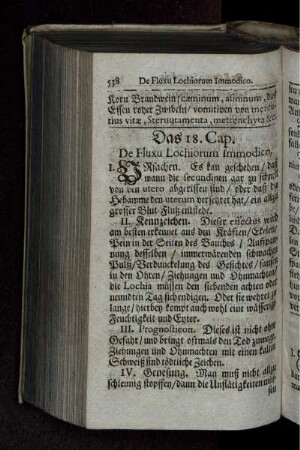 538 De Fluxu Lochiorum Immodico.
Korn Brandwein/ carminum, asininum, das
Essen roher Zwibeln/ vomitiven von mercu-
rius vitæ, Sternutamenta, metrenchyta &c.
Das 18. Cap.
De Fluxu Lochiorum Immodico,
I. URsachen. Es kan geschehen/ daß
wann die secundinen gar zu schnell
von den utero abgerissen sind/ oder daß die
Hebamme den uterum versehret hat/ ein allzu
grosser Blut-Fluß entstehe.
II. Kennzeichen. Dieser effectus wird
am besten erkennet aus den Kräften/ Eckelen/
Pein in der Seiten des Bauches/ Aufspan-
nung desselben/ immerwärenden schwachen
Pulß/ Verdunckelung des Gesichtes/ sausen
in den Ohren/ Ziehungen und Ohnmachten/
die Lochia müssen den siebenden achten oder
neundten Tag sich endigen. Oder sie wehret zu
lange/ hierbey kompt auch wohl eine wässerige
Feuchtigkeit und Eyter.
III. Prognosticon. Dieses ist nicht ohn
Gefahr/ und bringt oftmals den Tod zuwege.
Ziehungen und Ohnmachten mit einen kalten
Schweiß sind tödtliche Zeichen.
IV. Genesung. Man muß nicht allzu
schleunig stopffen/ dann die Unflätigkeiten müs-
sen